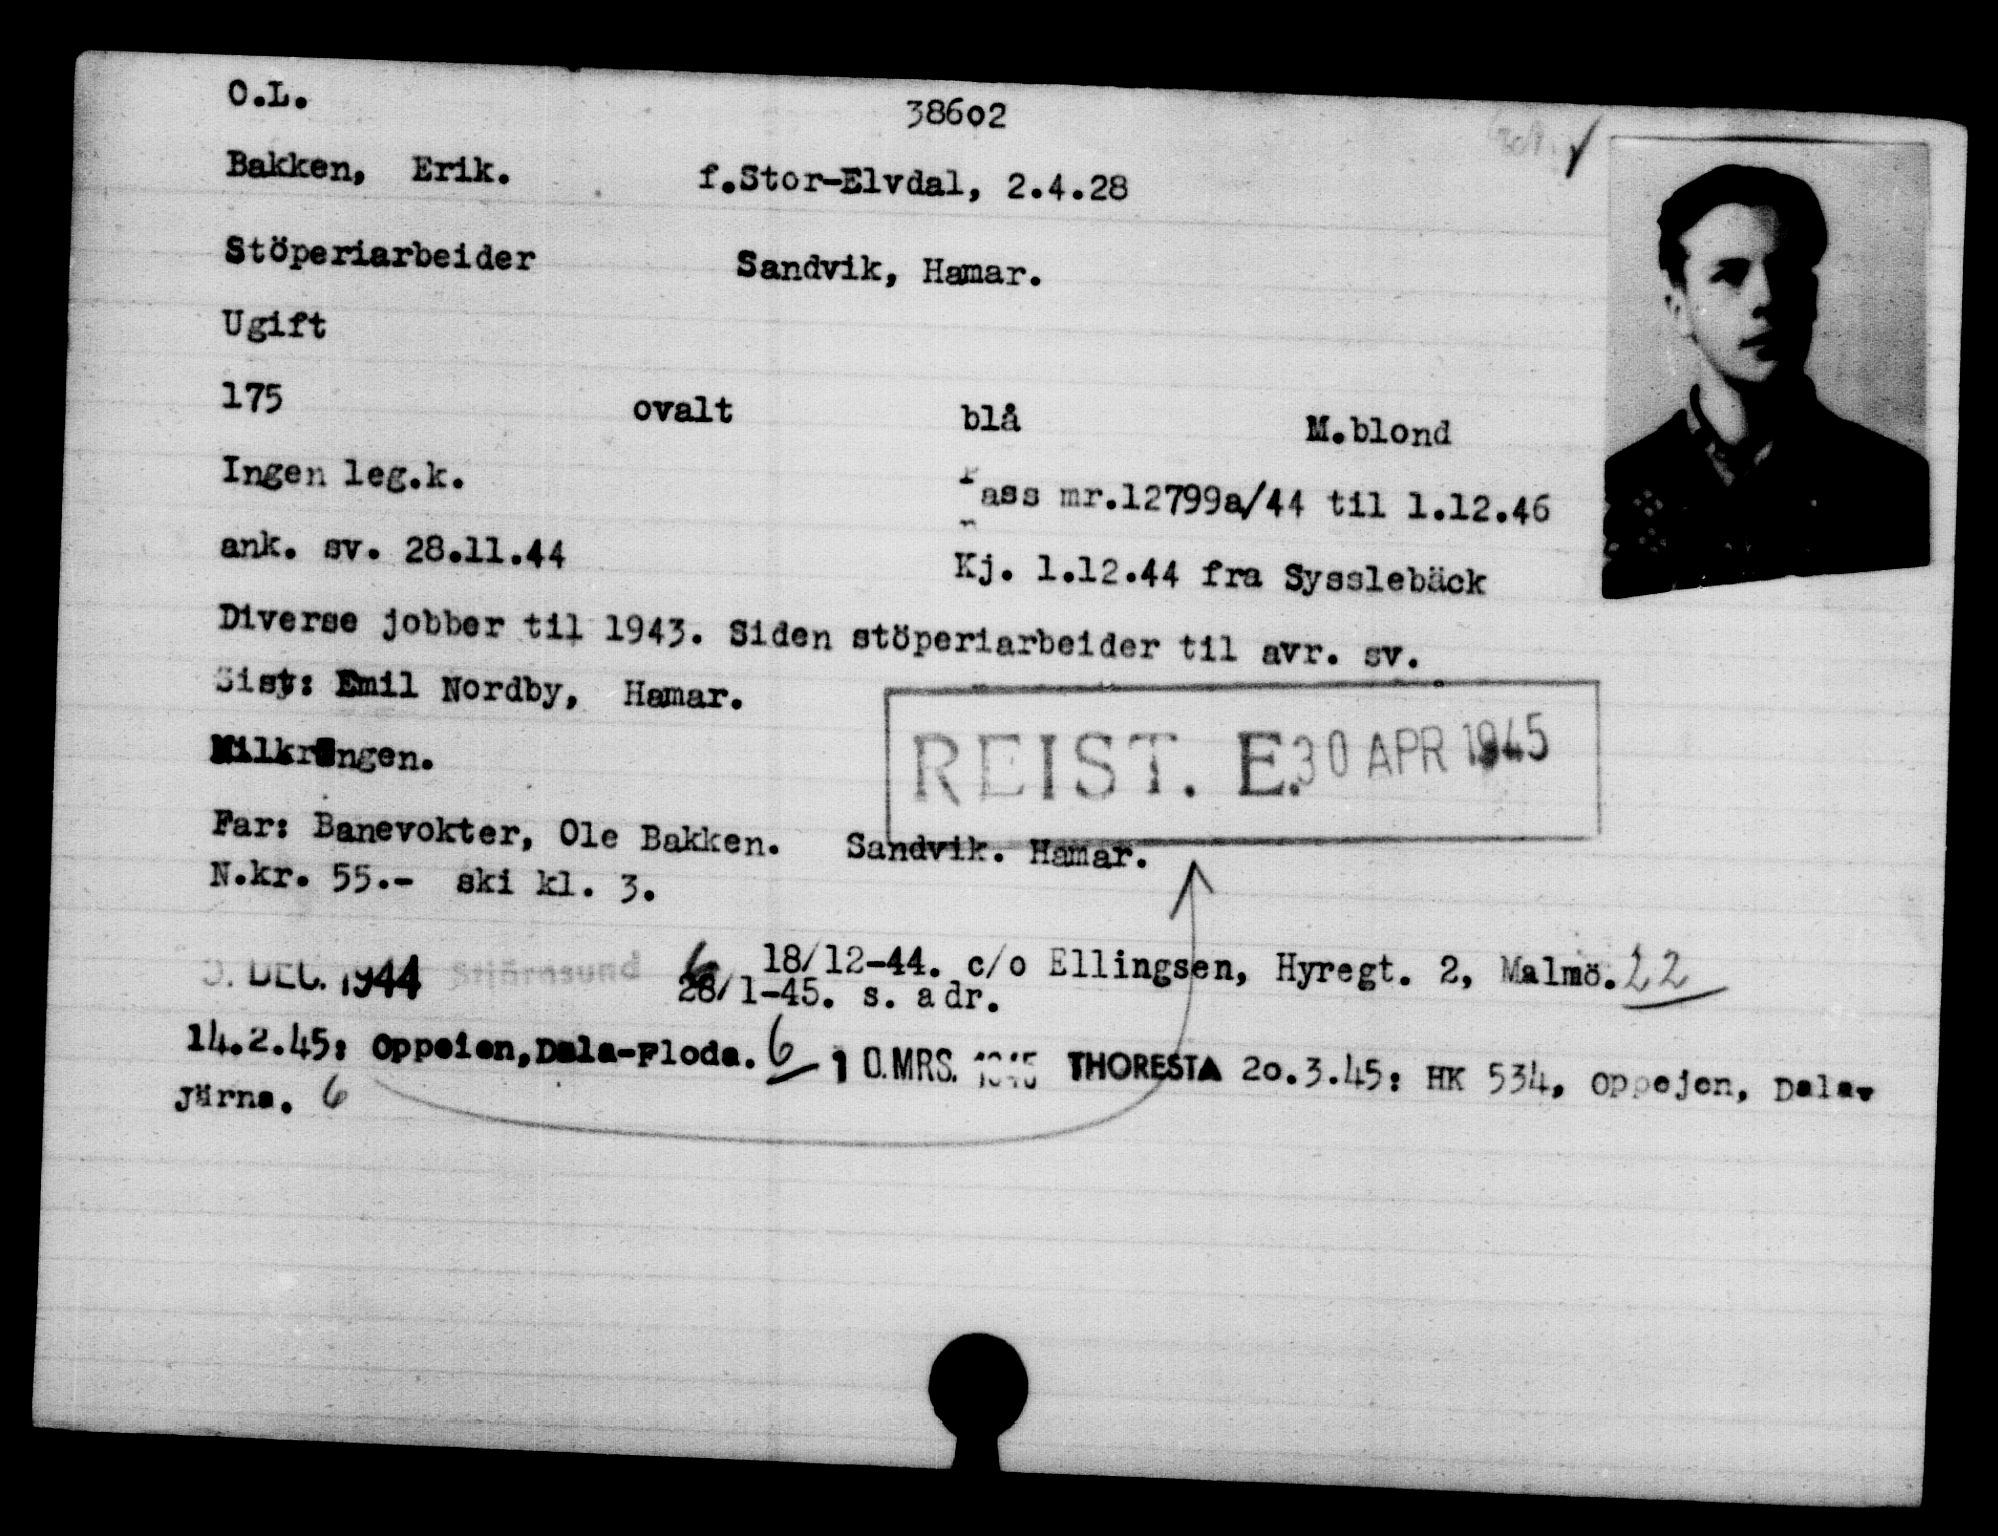 O.L. 38602
Bakken, Erik. f.Stor-Elvdal, 2.4.28
Stöperiarbeider Sandvik, Hamar.
Ugift
175 ovalt blå M.blond
Ingen leg.k. Pass nr.12799a/44 til 1.12.46
ank. sv. 28.11.44 Kj. 1.12.44 fra Sysslebäck
Diverse jobber til 1943. Siden stöperiarbeider til avr. sv.
Sist: Emil Nordby, Hamar.
REIST. E. 30 APR 1945
Far: Banevokter, Ole Bakken. Sandvik. Hamar.
N.kr. 55.- ski kl. 3.
DEC. 1944 Stjärnsund 6 18/12-44. c/o Ellingsen, Hyregt. 2, Malmö. 22
28/1-45. s. adr.
14.2.45: Oppeien,Dala-Floda. 6 10.MRS. 1945 THORESTA 20.3.45: HK 534, Oppejen, Dala-
Järna. 6